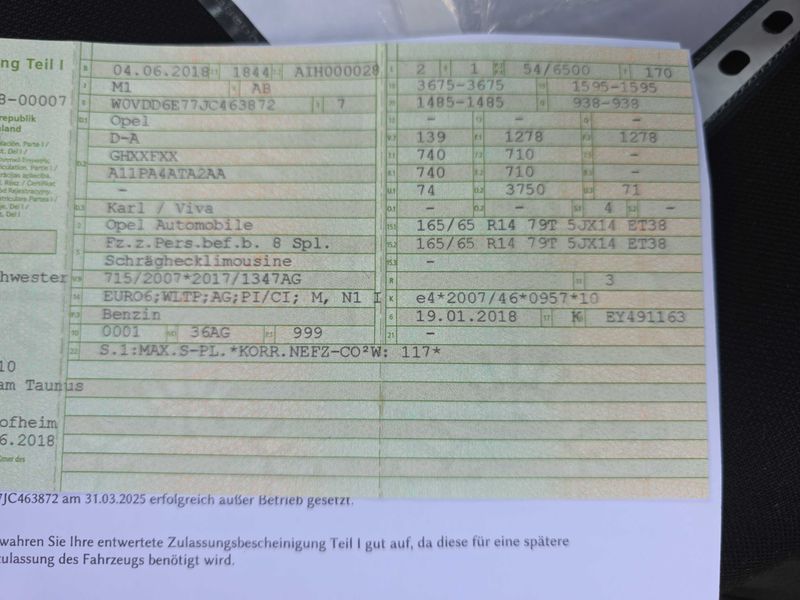 ng Teil I
B 04.06.2018 1844 AIH000029
M1 AB
8-00007
W0VDD6E77JC463872 7
Opel
D-A
GHXXFXX
A11PA4ATA2AA
–
Karl / Viva
Opel Automobile
Fz.z.Pers.bef.b. 8 Spl.
Schräghecklimousine
715/2007*2017/1347AG
EURO6;WLTP;AG;PI/CI; M, N1 I
Benzin
0001 36AG 999
S.1:MAX.S-PL.*KORR.NEFZ-CO²W: 117*
2 1 54/6500 170
3675-3675 1595-1595
1485-1485 938-938
– – –
139 1278 1278
740 710 –
740 710 –
74 3750 71
– – 4 –
165/65 R14 79T 5JX14 ET38
165/65 R14 79T 5JX14 ET38
–
3
K e4*2007/46*0957*10
6 19.01.2018 K EY491163
21 –
republik
land
hwester
10
am Taunus
ofheim
6.2018
7JC463872 am 31.03.2025 erfolgreich außer Betrieb gesetzt.
wahren Sie Ihre entwertete Zulassungsbescheinigung Teil I gut auf, da diese für eine spätere
zulassung des Fahrzeugs benötigt wird.